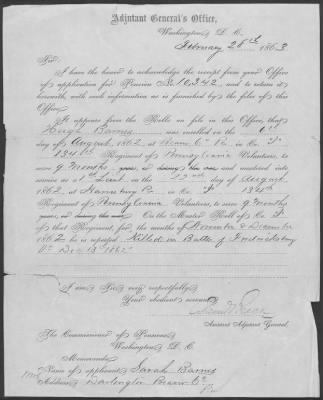 Adjutant General's Office,
Washington, D. C.
February 28th, 1863
Sir:
I have the honor to acknowledge the receipt from your Office
of application for Pension No. 10,342, and to return it
herewith, with such information as is furnished by the files of this
Office.
It appears from the Rolls on file in this Office, that
Hugh Barnes was enrolled on the
day of August, 1862, at Beaver Co. Pa. in Co. "F"
134th Regiment of Pennsylvania Volunteers, to
serve 9 months years, or during the war and mustered into
service as 1st Lieut. on the day of August
1862, at Harrisburg Pa. in Co. "F" 134th
Regiment of Pennsylvania Volunteers, to serve 9 months
years, or during the war. On the Muster Roll of Co. F
of that Regiment, for the months of November & December
1862, he is reported Killed in Battle of Fredericksburg
Va. Dec 13th 1862
I am, Sir, very respectfully,
Your obedient servant,
Assistant Adjutant General.
The Commissioner of Pensions,
Washington, D. C.
Memoranda:
Name of applicant, Sarah Barnes
Address, Darlington Beaver Co.
Pa